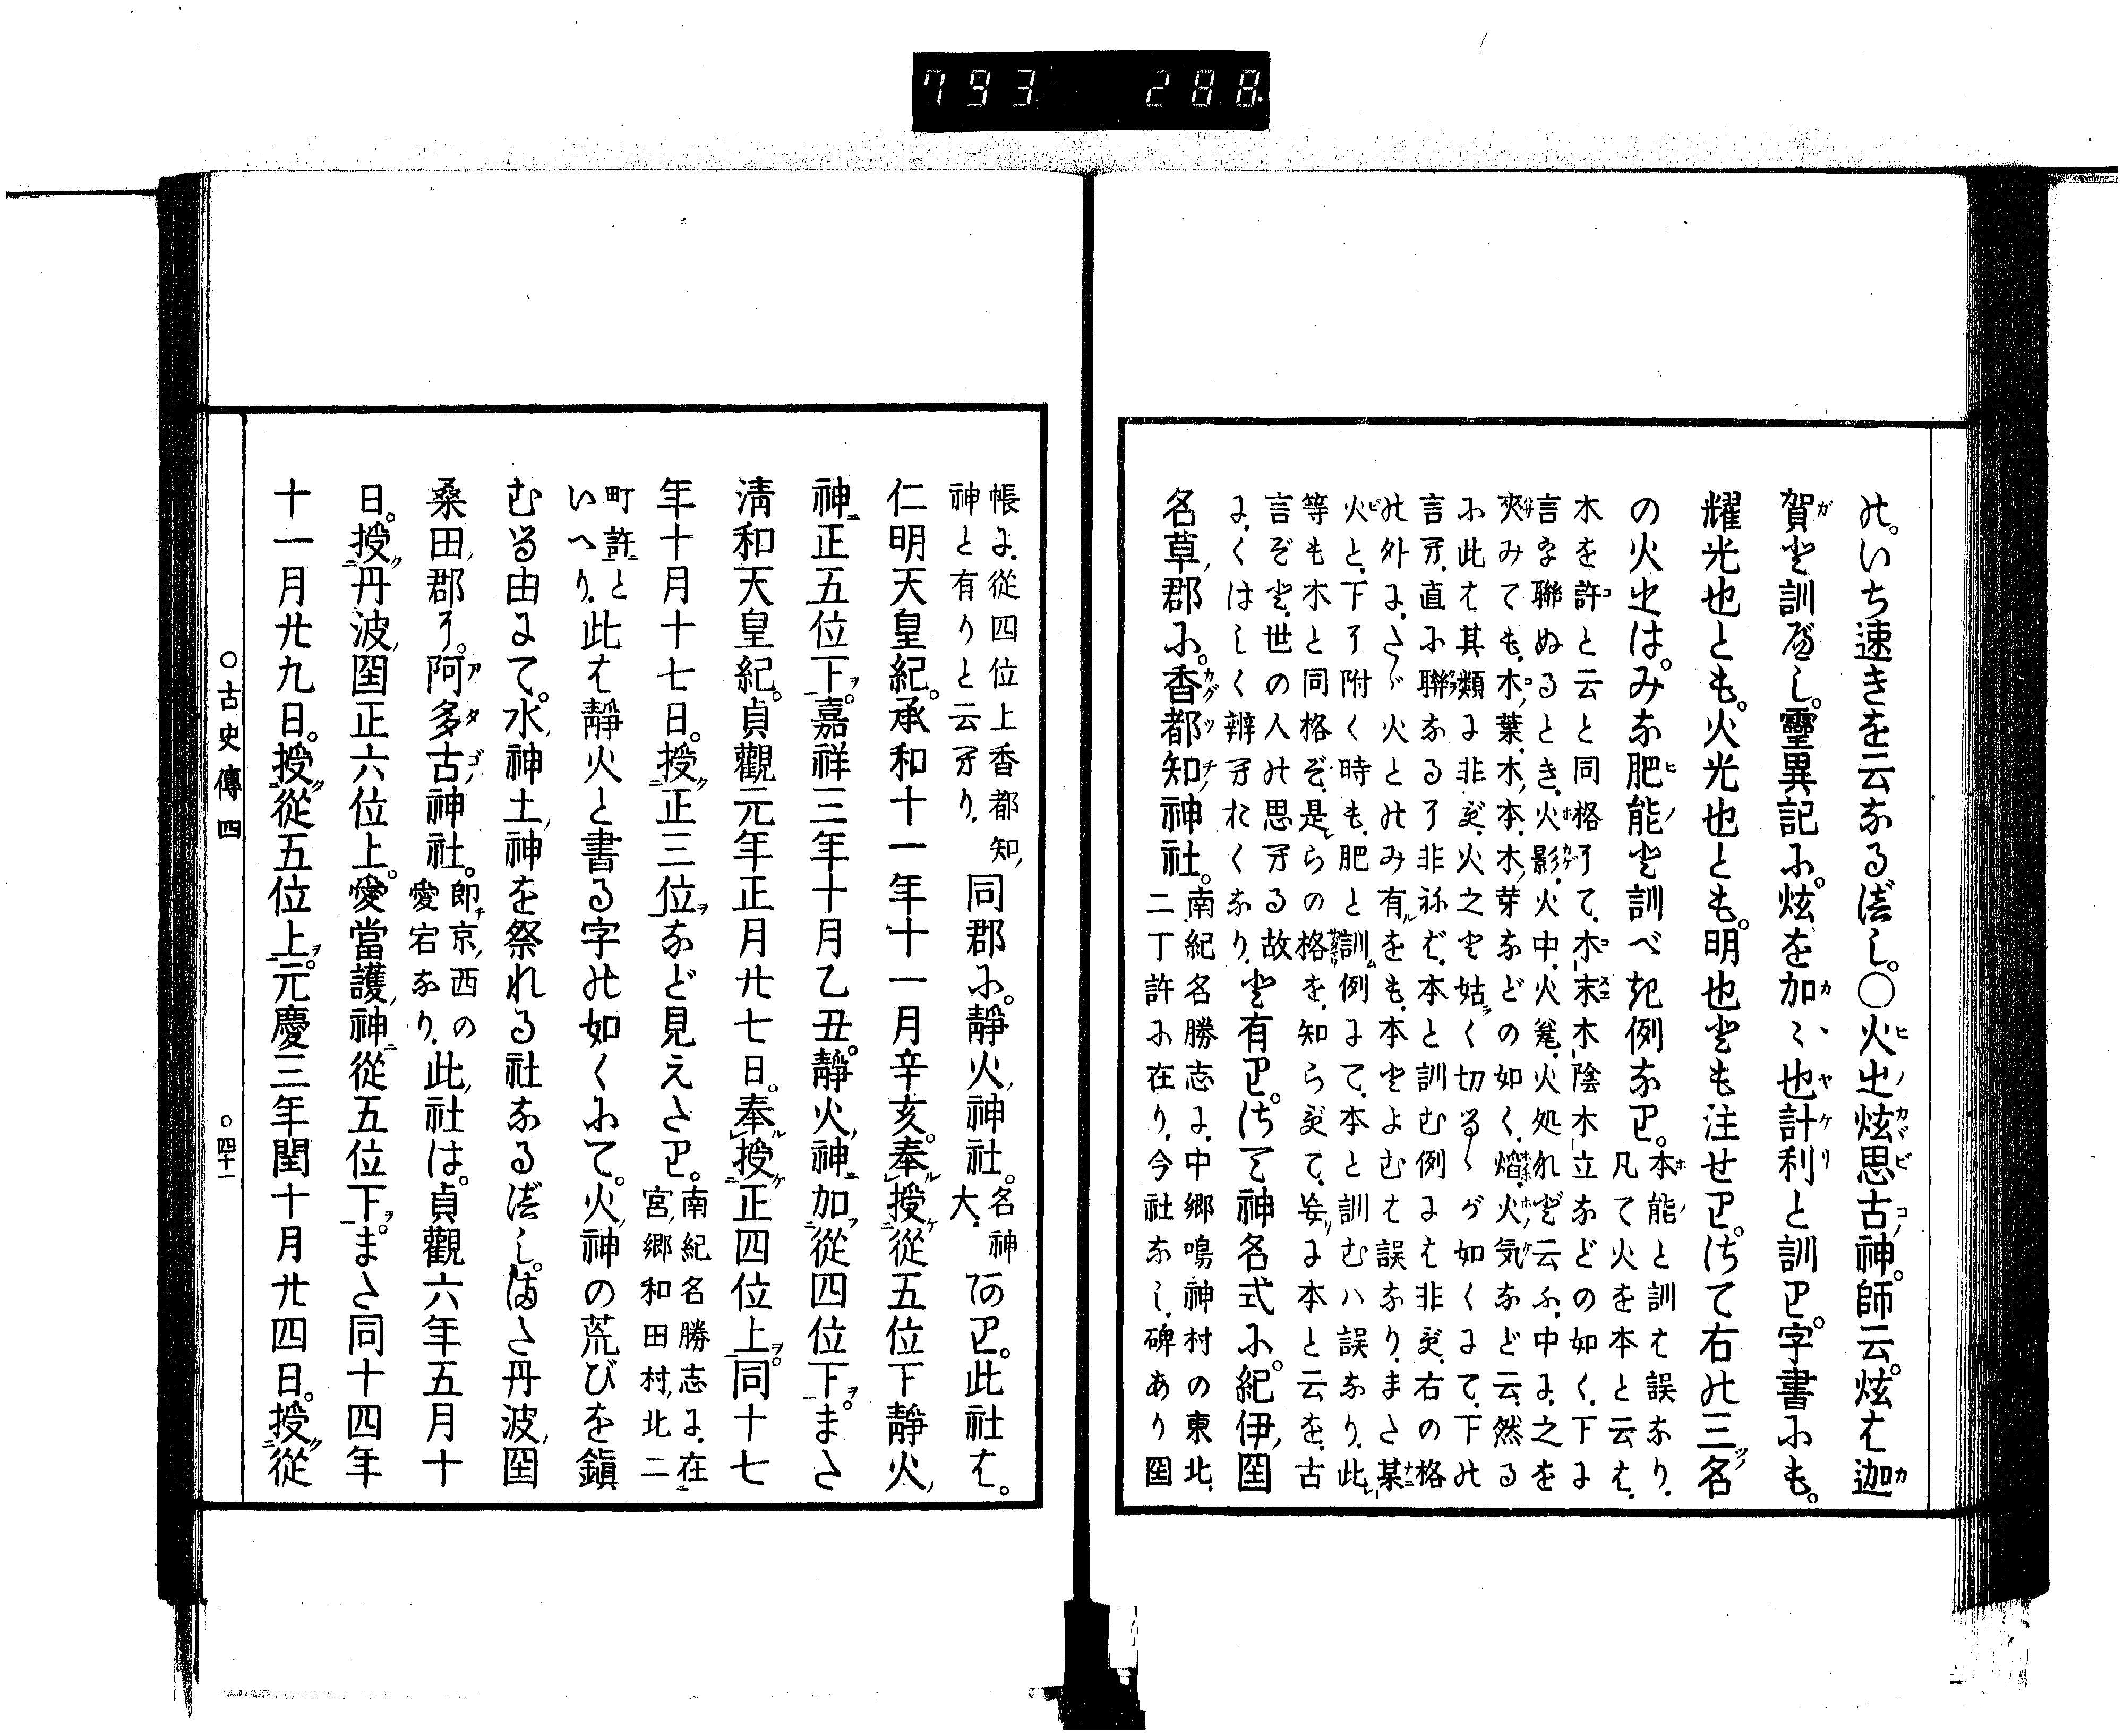 793 288
の。いち速きを云なるべし。○火之炫毘古神。師云。炫は迦
賀と訓べし。靈異記に。炫を加〻也計利と訓り。字書にも。
耀光也とも。火光也とも。明也とも注せり。さて右の三名
の火之は。みな肥能と訓べき例なり。本能と訓は誤なり。
凡て火を本と云は。
木を許と云と同格にて。木末木陰木立などの如く。下に
言を聯ぬるとき。火影。火中。火氣。火処などと云ふ。中に。之を
夾みても。木葉。木本。木芽などの如く。熖。火気など云。然る
に此は其類に非ず。火之と姑く切るゝが如くにて。下の
言へ。直に聯なるに非ねば。本と訓む例には非ず。右の格
の外に。たゞ火とのみ有をも。本とよむは誤なり。また某
火と。下に附く時も。肥と訓例にて。本と訓むハ誤なり。此
等も木と同格ぞ。是らの格を。知らずて。妄に本と云を。古
言ぞと。世の人の思へる故
に。くはしく辨へおくなり。と有り。さて神名式に。紀伊國
名草郡に。香都知神社。南紀名勝志に。中郷鳴神村の東北。
二丁許に在り。今社なし。碑あり國
帳に。從四位上香都知
神と有りと云へり。同郡に。靜火神社。名神
大。あり。此社は。
仁明天皇紀。承和十一年十一月辛亥。奉授從五位下靜火
神正五位下。嘉祥三年十月乙丑。靜火神加從四位下。また
清和天皇紀。貞觀元年正月廿七日。奉授正四位上。同十七
年十月十七日。授正三位など見えたり。南紀名勝志に。在
宮郷和田村北二
町許と
いへり。此は靜火と書る字の如くにて。火神の荒びを鎭
むる由にて。水神土神を祭れる社なるべし。また丹波國
桑田郡に。阿多古神社。即京西の
愛宕なり。此社は。貞觀六年五月十
日。授丹波國正六位上。愛當護神從五位下。また同十四年
十一月廿九日。授從五位上。元慶三年閏十月廿四日。授從
○古史傳四
○四十一